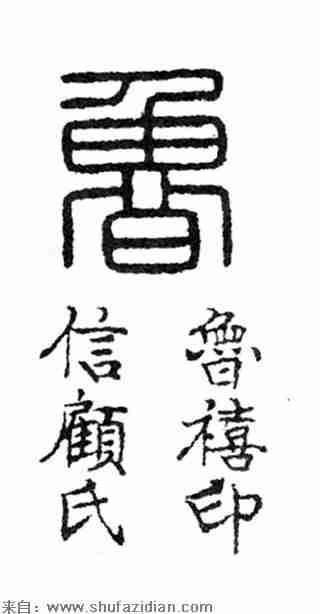 魯
魯禧印
信顧氏
来自：www.shufazidian.com